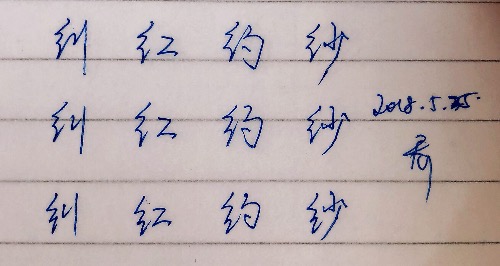 纠 红 约 纱
纠 红 约 纱
2018.5.25.
纠 红 约 纱